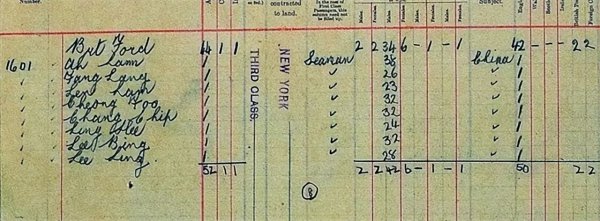 Number.
contracted to land.
In the case of First Class Passengers, this column need not be filled up.
Males. Females. Males. Females. Males. Females.
Brt Ford 44 1 1 2 2 34 6 - 1 - 1 - 42 - - - 2 2
1601 Ah Lam 1 Seaman 38 China 1
" Fang Lang 1 " 26 " 1
" Len Lam 1 " 23 " 1
" Cheong Foo 1 " 32 " 1
" Chang Chip 1 " 32 " 1
" Ling Hee 1 " 24 " 1
" Lee Bing 1 " 32 " 1
" Lee Ling. 1 " 28 " 1
THIRD CLASS.
NEW YORK
52 1 1 2 2 42 6 - 1 - 1 50 2 2